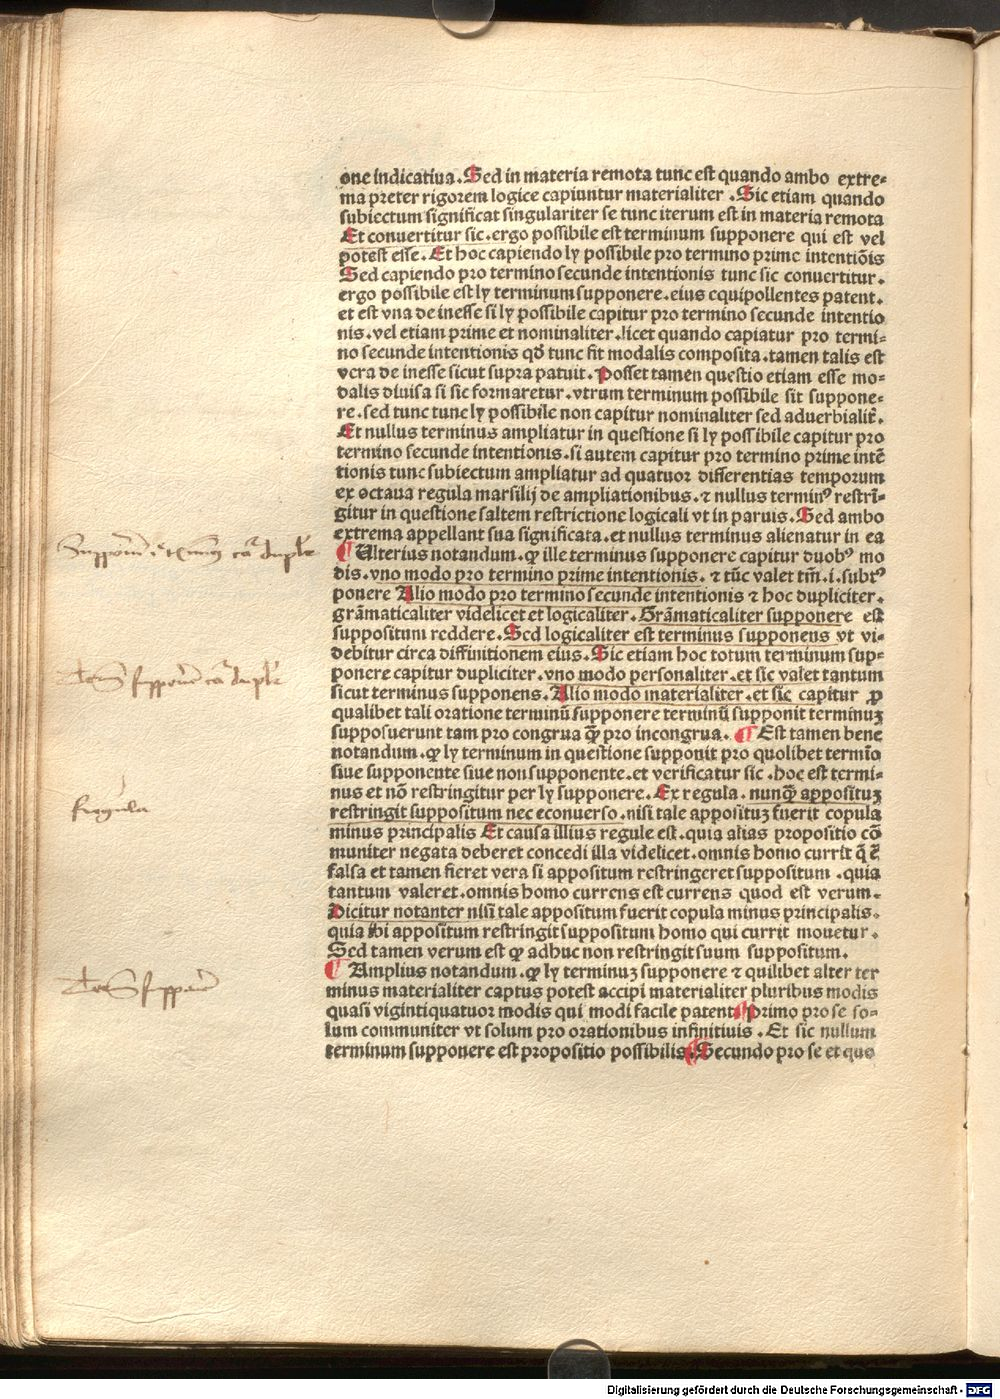 one indicatiua. Sed in materia remota tunc est quando ambo extre=
ma preter rigorem logice capiuntur materialiter. Sic etiam quando
subiectum significat singulariter se tunc iterum est in materia remota
Et conuertitur sic. ergo possibile est terminum supponere qui est vel
potest esse. Et hoc capiendo ly possibile pro termino prime intentiōis
Sed capiendo pro termino secunde intentionis tunc sic conuertitur.
ergo possibile est ly terminum supponere. eius equipollentes patent.
et est vna de inesse si ly possibile capitur pro termino secunde intentio
nis. vel etiam prime et nominaliter. licet quando capiatur pro termi=
no secunde intentionis qđ tunc sit modalis composita. tamen talis est
vera de inesse sicut supra patuit. Posset tamen questio etiam esse mo=
dalis diuisa si sic formaretur. vtrum terminum possibile sit suppone=
re. sed tunc tunc ly possibile non capitur nominaliter sed aduerbialiť.
Et nullus terminus ampliatur in questione si ly possibile capitur pro
termino secunde intentionis. si autem capitur pro termino prime intē
tionis tunc subiectum ampliatur ad quatuor differentias temporum
ex octaua regula marsilij de ampliationibus. ⁊ nullus terminꝰ restrī=
gitur in questione saltem restrictione logicali vt in paruis. Sed ambo
extrema appellant sua significata. et nullus terminus alienatur in ea
¶ Ulterius notandum. ꝙ ille terminus supponere capitur duobꝰ mo
dis. vno modo pro termino prime intentionis. ⁊ tūc valet tm̄. i. subtꝰ
ponere Alio modo pro termino secunde intentionis ⁊ hoc dupliciter.
grāmaticaliter videlicet et logicaliter. Grāmaticaliter supponere est
suppositum reddere. Sed logicaliter est terminus supponens vt vi=
debitur circa diffinitionem eius. Sic etiam hoc totum terminum sup=
ponere capitur dupliciter. vno modo personaliter. et sic valet tantum
sicut terminus supponens. Alio modo materialiter. et sic capitur ꝓ
qualibet tali oratione terminū supponere terminū supponit terminuꝫ
supposuerunt tam pro congrua q̄ꝫ pro incongrua. ¶ Est tamen bene
notandum. ꝙ ly terminum in questione supponit pro quolibet termīo
siue supponente siue non supponente. et verificatur sic. hoc est termi=
nus et nō restringitur per ly supponere. Ex regula. nunq̄ꝫ apposituꝫ
restringit suppositum nec econuerso. nisi tale apposituꝫ fuerit copula
minus principalis Et causa illius regule est. quia alias propositio cō
muniter negata deberet concedi illa videlicet. omnis homo currit q̄ ē
falsa et tamen fieret vera si appositum restringeret suppositum. quia
tantum valeret. omnis homo currens est currens quod est verum.
Dicitur notanter nisi tale appositum fuerit copula minus principalis.
quia ibi appositum restringit suppositum homo qui currit mouetur.
Sed tamen verum est ꝙ adhuc non restringit suum suppositum.
¶ Amplius notandum. ꝙ ly terminuꝫ supponere ⁊ quilibet alter ter
minus materialiter captus potest accipi materialiter pluribus modis
quasi vigintiquatuor modis qui modi facile patent ¶ Primo pro se so=
lum communiter vt solum pro orationibus infinitiuis. Et sic nullum
terminum supponere est propositio possibilis. ¶ Secundo pro se et quo
regula